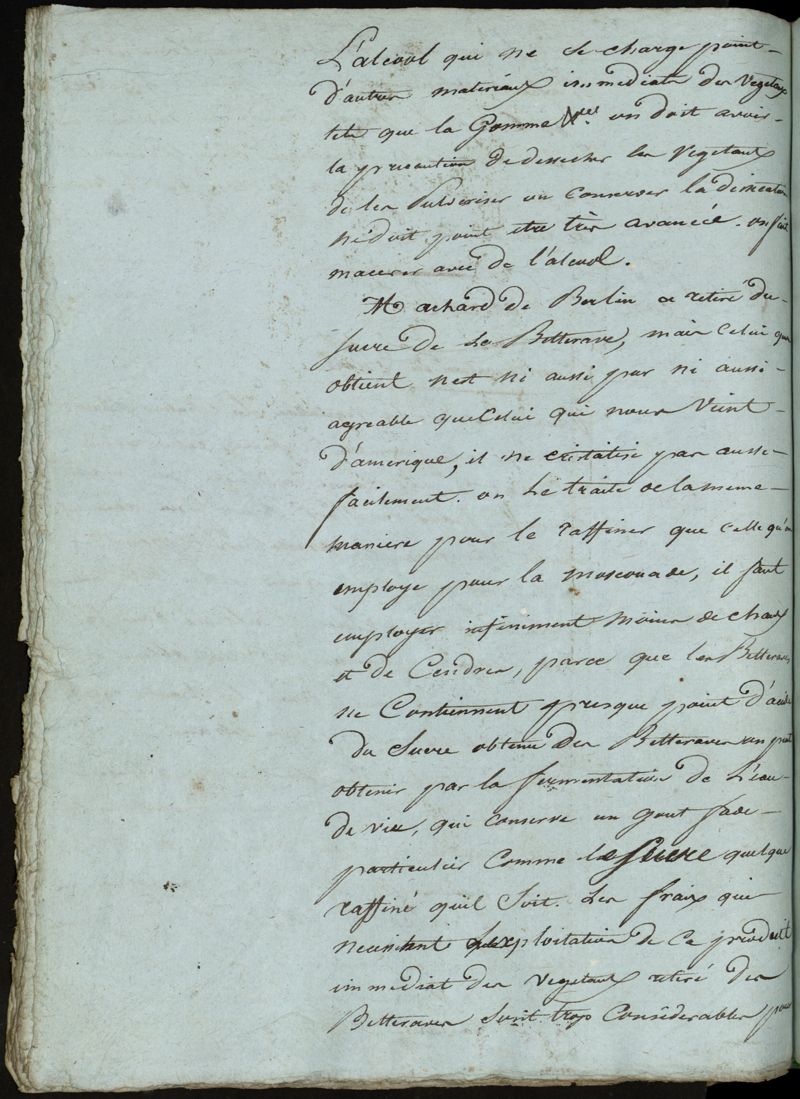 L'alcool qui ne se charge point
d'autres materiaux immediats des Vegetaux
tels que la Gomme &c. on doit avoir
la precaution de dessecher les Vegetaux
de les Pulveriser ou conserver la dissication
ne doit point etre très avancée. on fait
macerer avec de l'alcool.
M achard de Berlin a retiré du
sucre de La Betterave, mais Celui qu'on
obtient n'est ni aussi pur ni aussi
agreable que Celui qui nous Vient
d'amerique, il ne cristalise pas aussi
facilement. on Le traite de la meme
maniere pour le raffiner que celle qu'on
employe pour la moscouade, il faut
employer infiniment moins de chaux
et de Cendres, parce que les Betteraves
ne Contiennent presque point d'acide
du Sucre obtenu des Betteraves on peut
obtenir par la fermentation de L'eau
de vie, qui conserve un gout fade
particulier comme le Sucre quelque
raffiné qu'il Soit. Les fraix que
l'exploitation de ce produit
immediat des vegetaux retiré des
Betteraves Sont trop Considerables pour